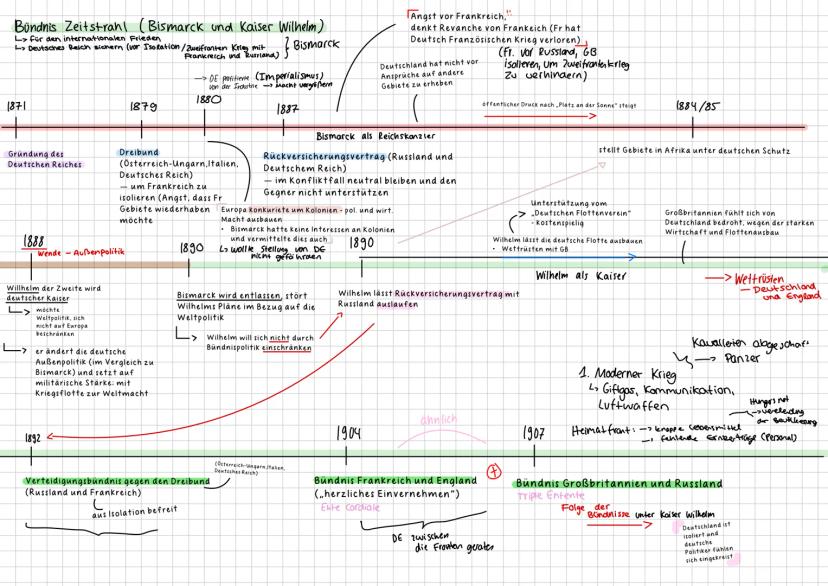 Bündnis Zeitstrahl (Bismarck und Kaiser Wilhelm)
↳ für den internationalen Frieden
↳ Deutsches Reich sichern (vor Isolation / Zweifronten Krieg mit
Frankreich und Russland)
Bismarck
"Angst vor Frankreich,"
denkt Revanche von Frankeich (Fr hat
Deutsch Französischen Krieg verloren)
(Fr. vor Russland, GB
isolieren, um Zweifrontenkrieg
zu verhindern)
→ DE profitierte (Imperialismus)
von der Industrie → Macht vergrößern
Deutschland hat nicht vor
Ansprüche auf andere
Gebiete zu erheben
öffentlicher Druck nach „Platz an der Sonne" steigt
1871
1879
1880
1887
1884/85
Bismarck als Reichskanzler
Gründung des
Deutschen Reiches
Dreibund
(Österreich-Ungarn,Italien,
Deutsches Reich)
— um Frankreich zu
isolieren (Angst, dass Fr
Gebiete wiederhaben
möchte
Rückversicherungsvertrag (Russland und
Deutschem Reich)
— im Konfliktfall neutral bleiben und den
Gegner nicht unterstützen
stellt Gebiete in Afrika unter deutschen Schutz
Europa konkuriete um Kolonien - pol. und wirt.
Macht ausbauen
• Bismarck hatte keine Interessen an Kolonien
und vermittelte dies auch
↳ wollte Stellung von DE
nicht gefährden
Unterstützung vom
„Deutschen Flottenverein"
- kostenspielig
Wilhelm lässt die deutsche Flotte ausbauen
• Wettrüsten mit GB
Großbritannien fühlt sich von
Deutschland bedroht, wegen der starken
Wirtschaft und Flottenausbau
1888
Wende - Außenpolitik
1890
1890
Wilhelm als Kaiser
→ Wettrüsten
— Deutschland
und England
Willhelm der Zweite wird
deutscher Kaiser
möchte
Weltpolitik, sich
nicht auf Europa
beschränken
er ändert die deutsche
Außenpolitik (im Vergleich zu
Bismarck) und setzt auf
militärische Stärke: mit
Kriegsflotte zur Weltmacht
Bismarck wird entlassen, stört
Wilhelms Pläne im Bezug auf die
Weltpolitik
Wilhelm will sich nicht durch
Bündnispolitik einschränken
Wilhelm lässt Rückversicherungsvertrag mit
Russland auslaufen
→ Panzer
1. Moderner Krieg
↳ Giftgas, Kommunikation,
Luftwaffen
Hungersnot
→ Verelendung
der Bevölkerung
Heimatfront: → knappe Lebensmittel
→ fehlende Ernteerträge (Personal)
1892
1904
ähnlich
1907
Verteidigungsbündnis gegen den Dreibund
(Österreich-Ungarn,Italien,
Deutsches Reich)
(Russland und Frankreich)
aus Isolation befreit
Bündnis Frankreich und England
(„herzliches Einvernehmen")
Ente Cordiale
DE zwischen
die Fronten geraten
+
Bündnis Großbritannien und Russland
Triple Entente
Folge der
Bündnisse unter Kaiser Wilhelm
Deutschland ist
isoliert und
deutsche
Politiker fühlen
sich eingekreist